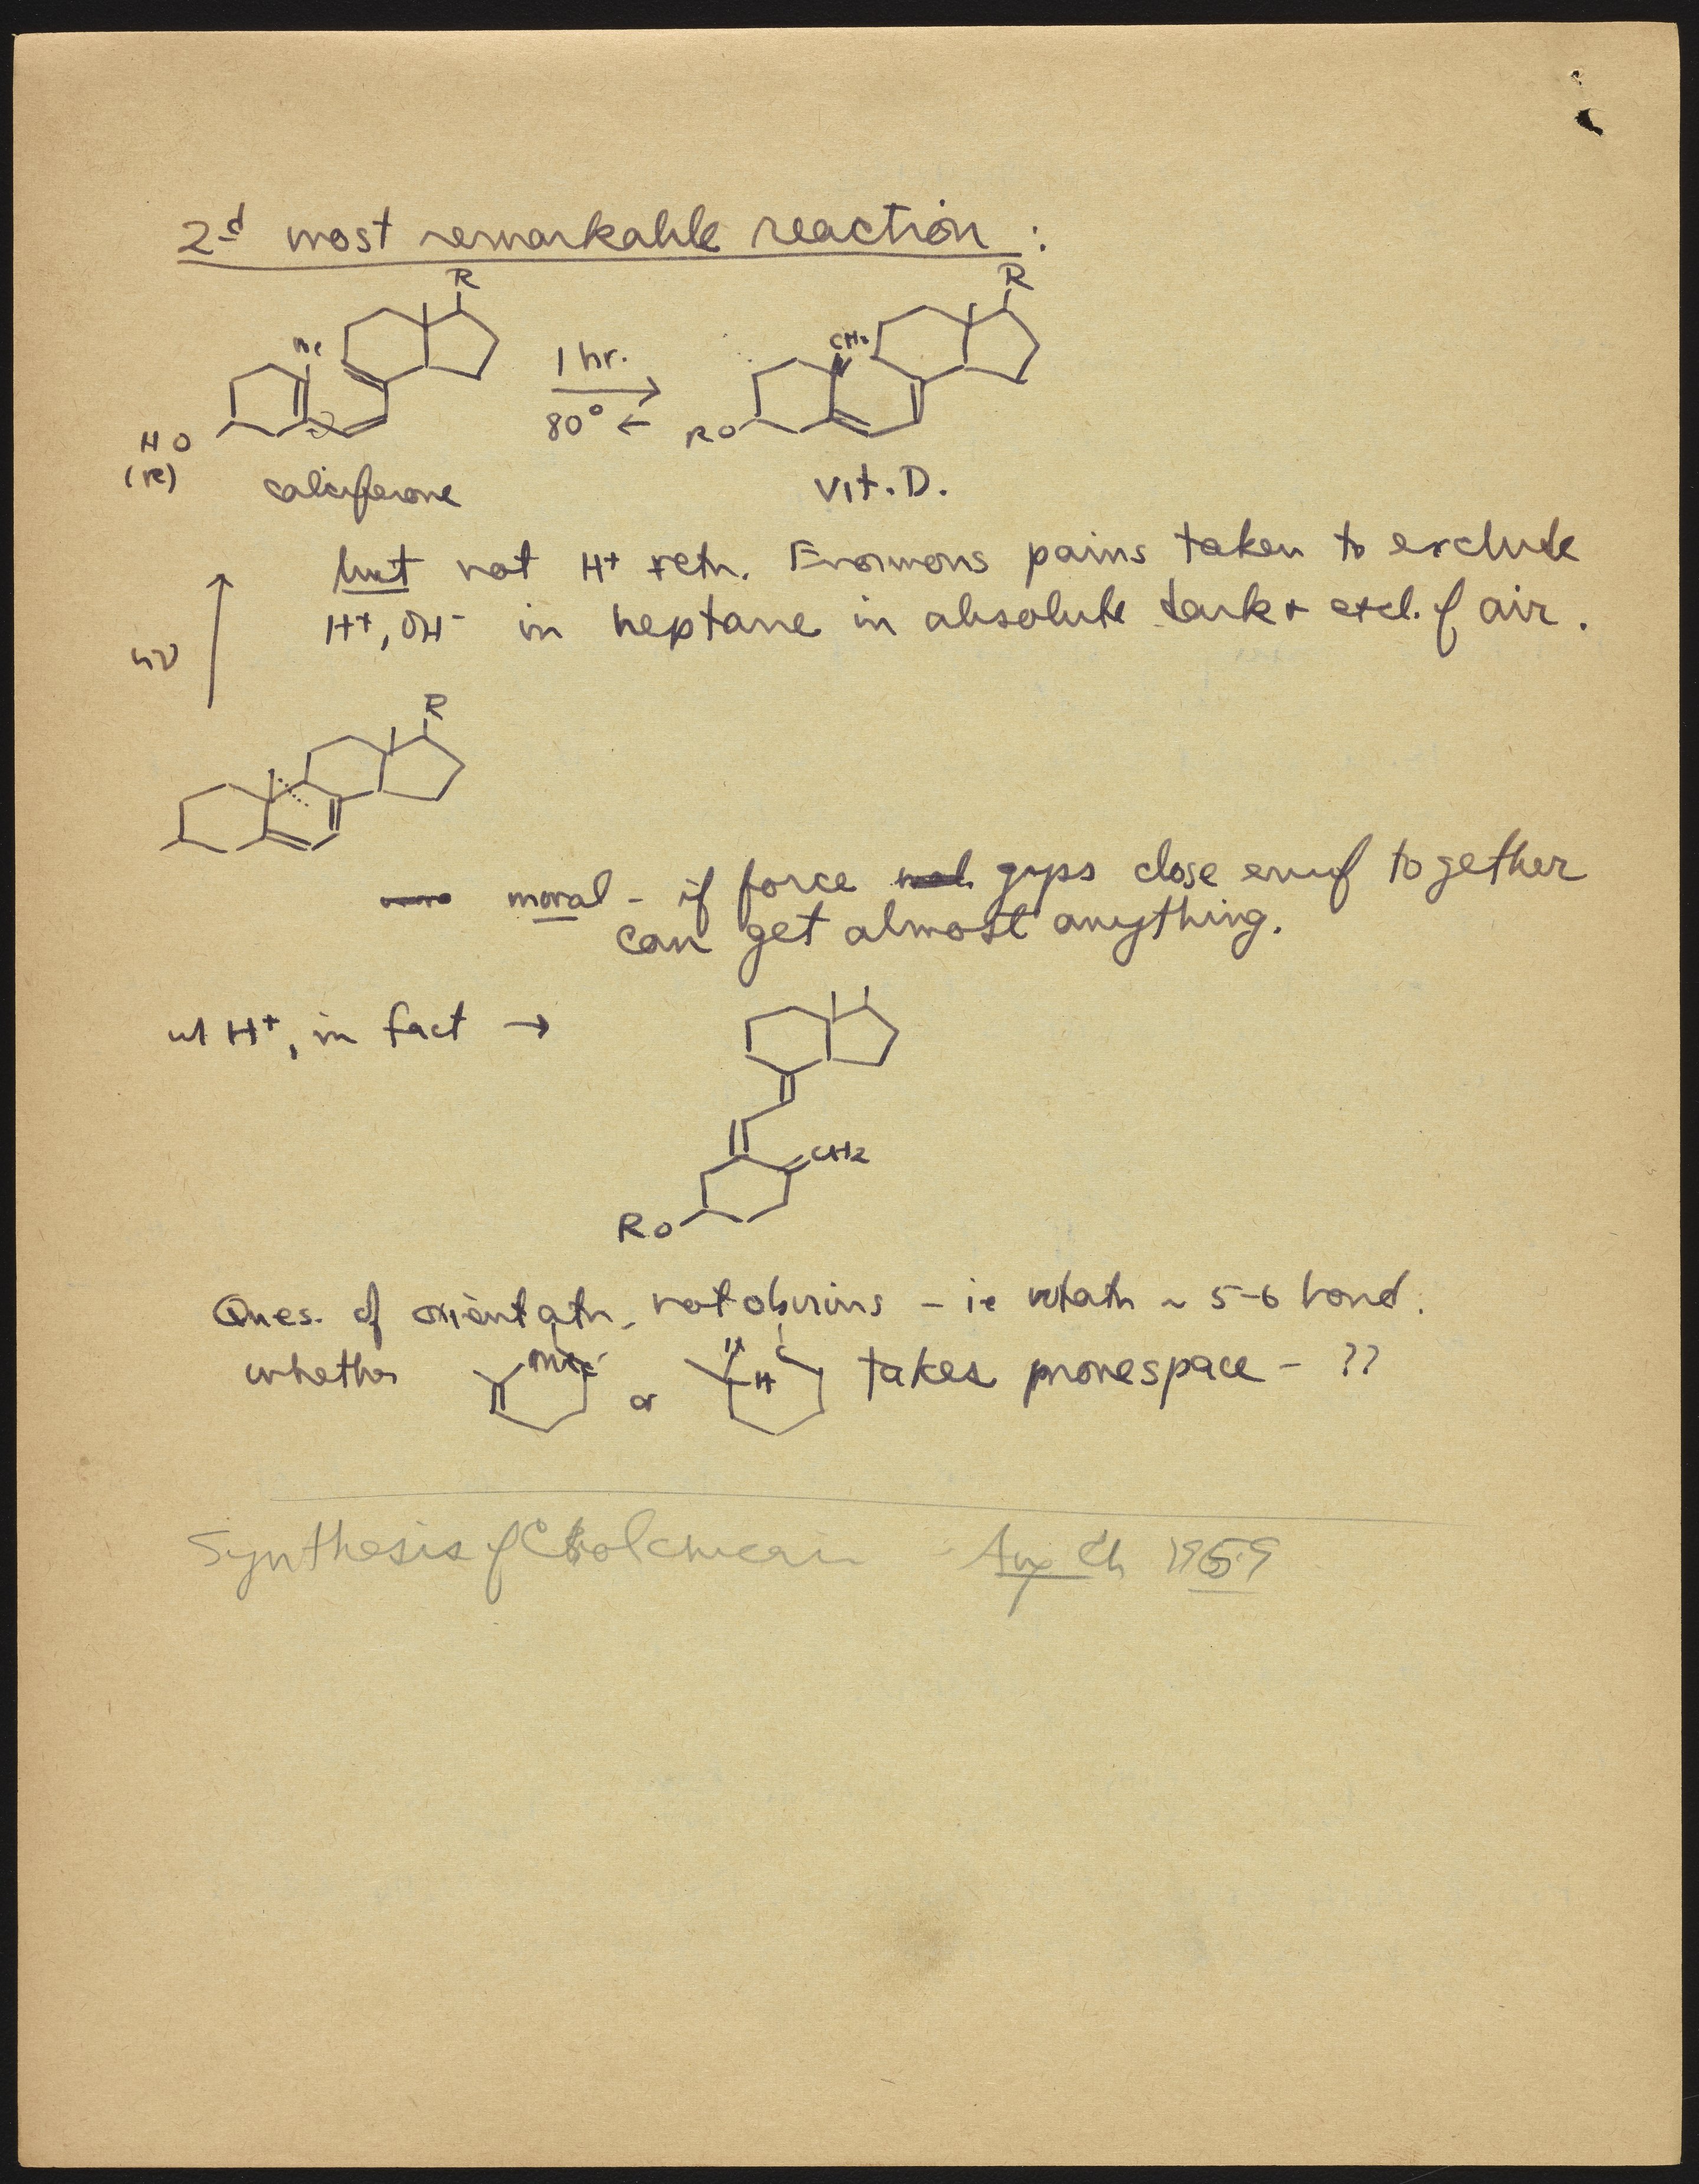 2d most remarkable reaction :
R
R
Me
CH2
1 hr.
80°
HO
(R)
RO
calciferone
vit. D.
but not H+ rctn. Enormous pains taken to exclude
H+, OH- in heptane in absolute dark + excl. of air.
hν
R
moral - if force gps close enuf together
can get almost anything.
w/ H+, in fact →
CH2
RO
Ques. of orientatn, not obvious - ie rotatn ~ 5-6 bond.
whether Me or H H C takes more space - ??
Synthesis of Ang Ch 1959